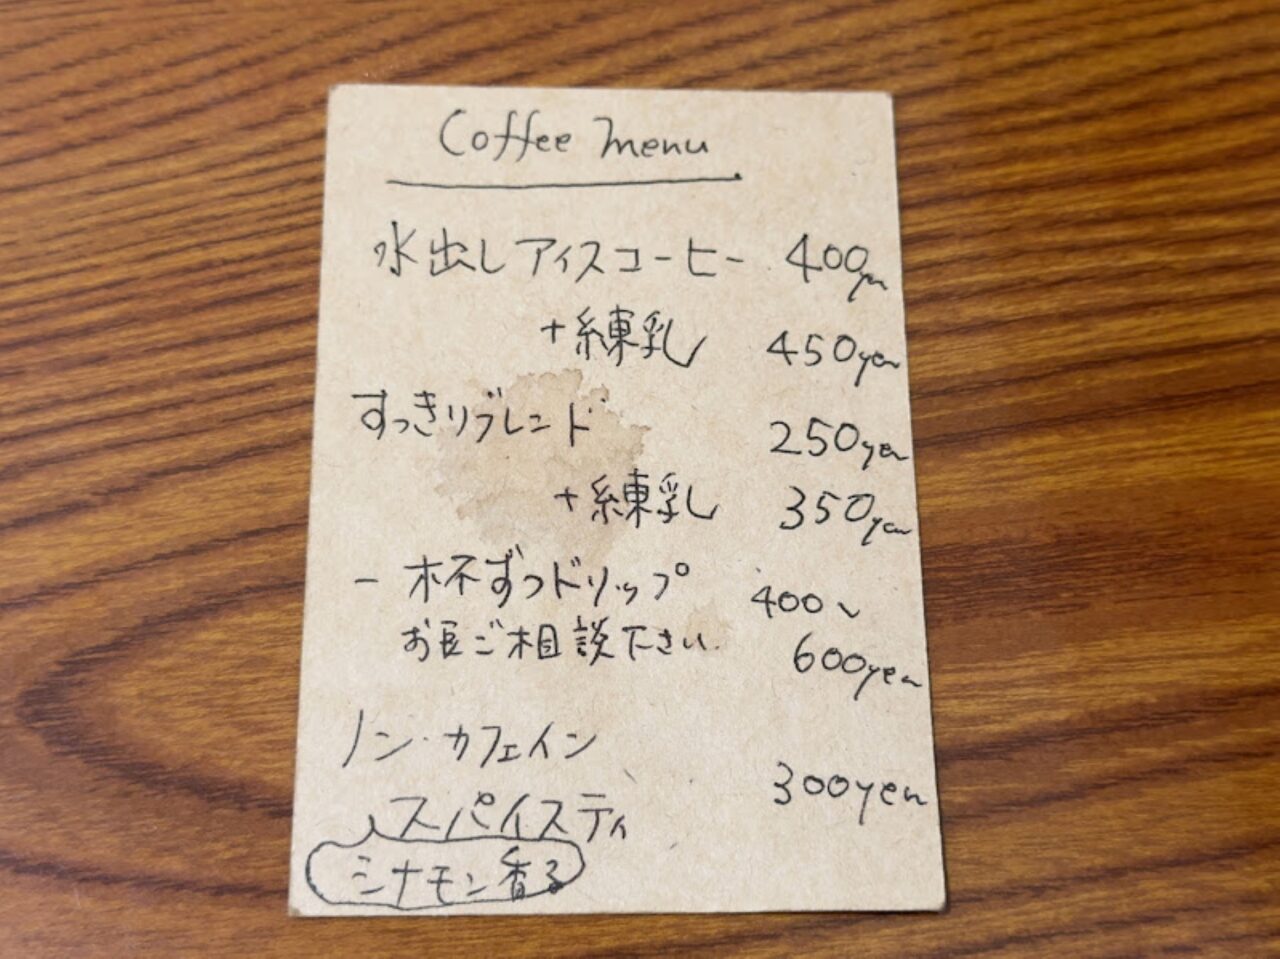 Coffee menu
水出しアイスコーヒー 400yen
+練乳 450yen
すっきりブレンド 250yen
+練乳 350yen
一杯ずつドリップ 400〜
お豆ご相談下さい 600yen
ノン・カフェイン
スパイスティ 300yen
シナモン香る